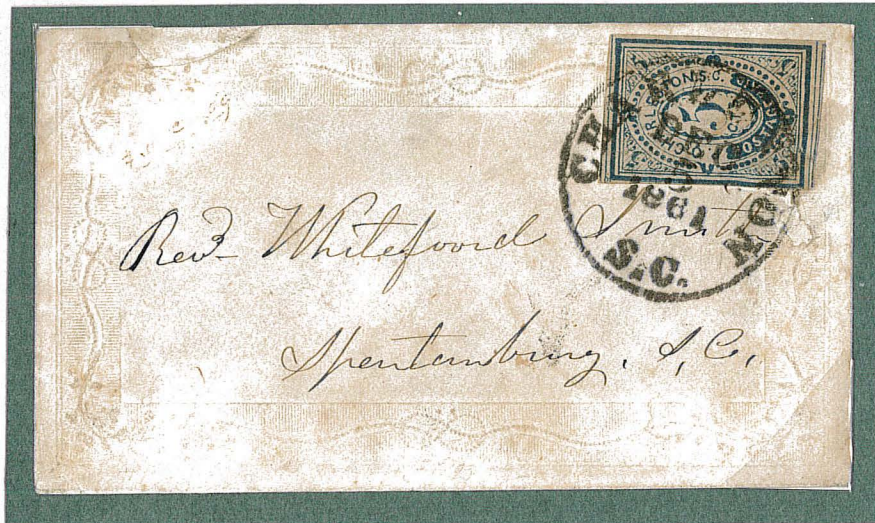 CHARLESTON S.C.
POSTOFFICE
5
CTS.
CHARLESTON
1861
S.C.
Revd Whitefoord Smith
Spartanburg, S, C,